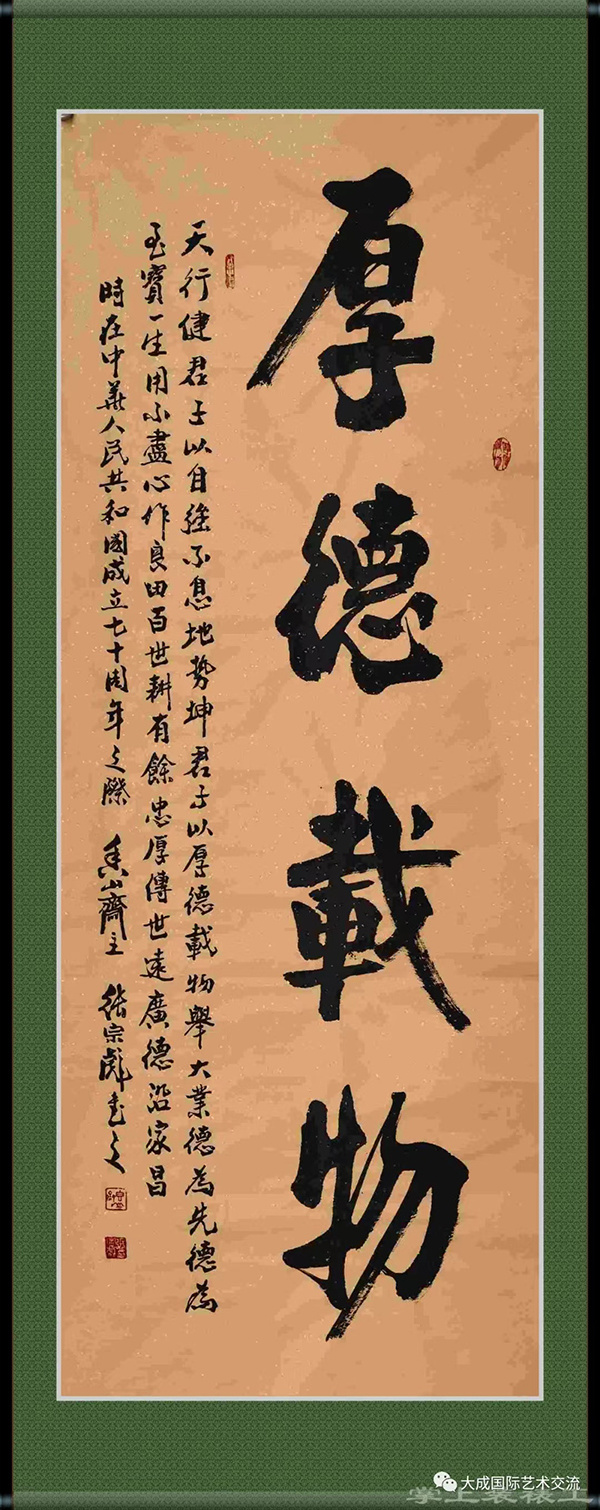 厚德載物
天行健君子以自強不息地勢坤君子以厚德載物舉大業德為先德為
至寶一生用不盡心作良田百世耕有餘忠厚傳世遠廣德沿家昌
時在中華人民共和國成立七十周年之際 香山齋主 張宗彪書之
大成国际艺术交流
掌上装裱工